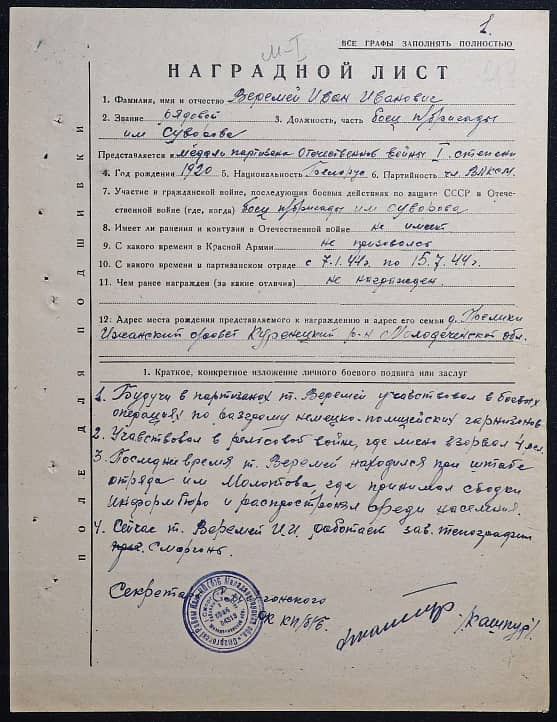 1.
М-I
ВСЕ ГРАФЫ ЗАПОЛНЯТЬ ПОЛНОСТЬЮ
НАГРАДНОЙ ЛИСТ
1. Фамилия, имя и отчество Веремей Иван Иванович
2. Звание рядовой 3. Должность, часть боец п/бригады
им Суворова
Представляется к медали партизана Отечественной войны I степени
4. Год рождения 1920 5. Национальность Белорус 6. Партийность чл. ВЛКСМ.
7. Участие в гражданской войне, последующих боевых действиях по защите СССР в Отече-
ственной войне (где, когда) боец п/бригады им Суворова
8. Имеет ли ранения и контузии в Отечественной войне не имеет
9. С какого времени в Красной Армии не призывался
10. С какого времени в партизанском отряде с 7.1.44г. по 15.7.44г.
11. Чем ранее награжден (за какие отличия) не награжден.
12. Адрес места рождения представляемого к награждению и адрес его семьи д.
Ижанский с/совет Куренецкий р-н Молодеченской обл.
1. Краткое, конкретное изложение личного боевого подвига или заслуг
1. Будучи в партизанах т. Веремей учавствовал в боевых
операциях по разгрому немецко-полицейских гарнизонов.
2. Учавствовал в рельсовой войне, где лично взорвал 4 рел.
3. Последнее время т. Веремей находился при штабе
отряда им Молотова, где принимал сводки
Информбюро и распространял среди населения.
4. Сейчас т. Веремей И.И. работает зав. типографии
Сморгонь.
Секретарь Сморгонского
РК КП/б/Б.
/Кашпур/
ПОЛЕ ДЛЯ ПОДШИВКИ